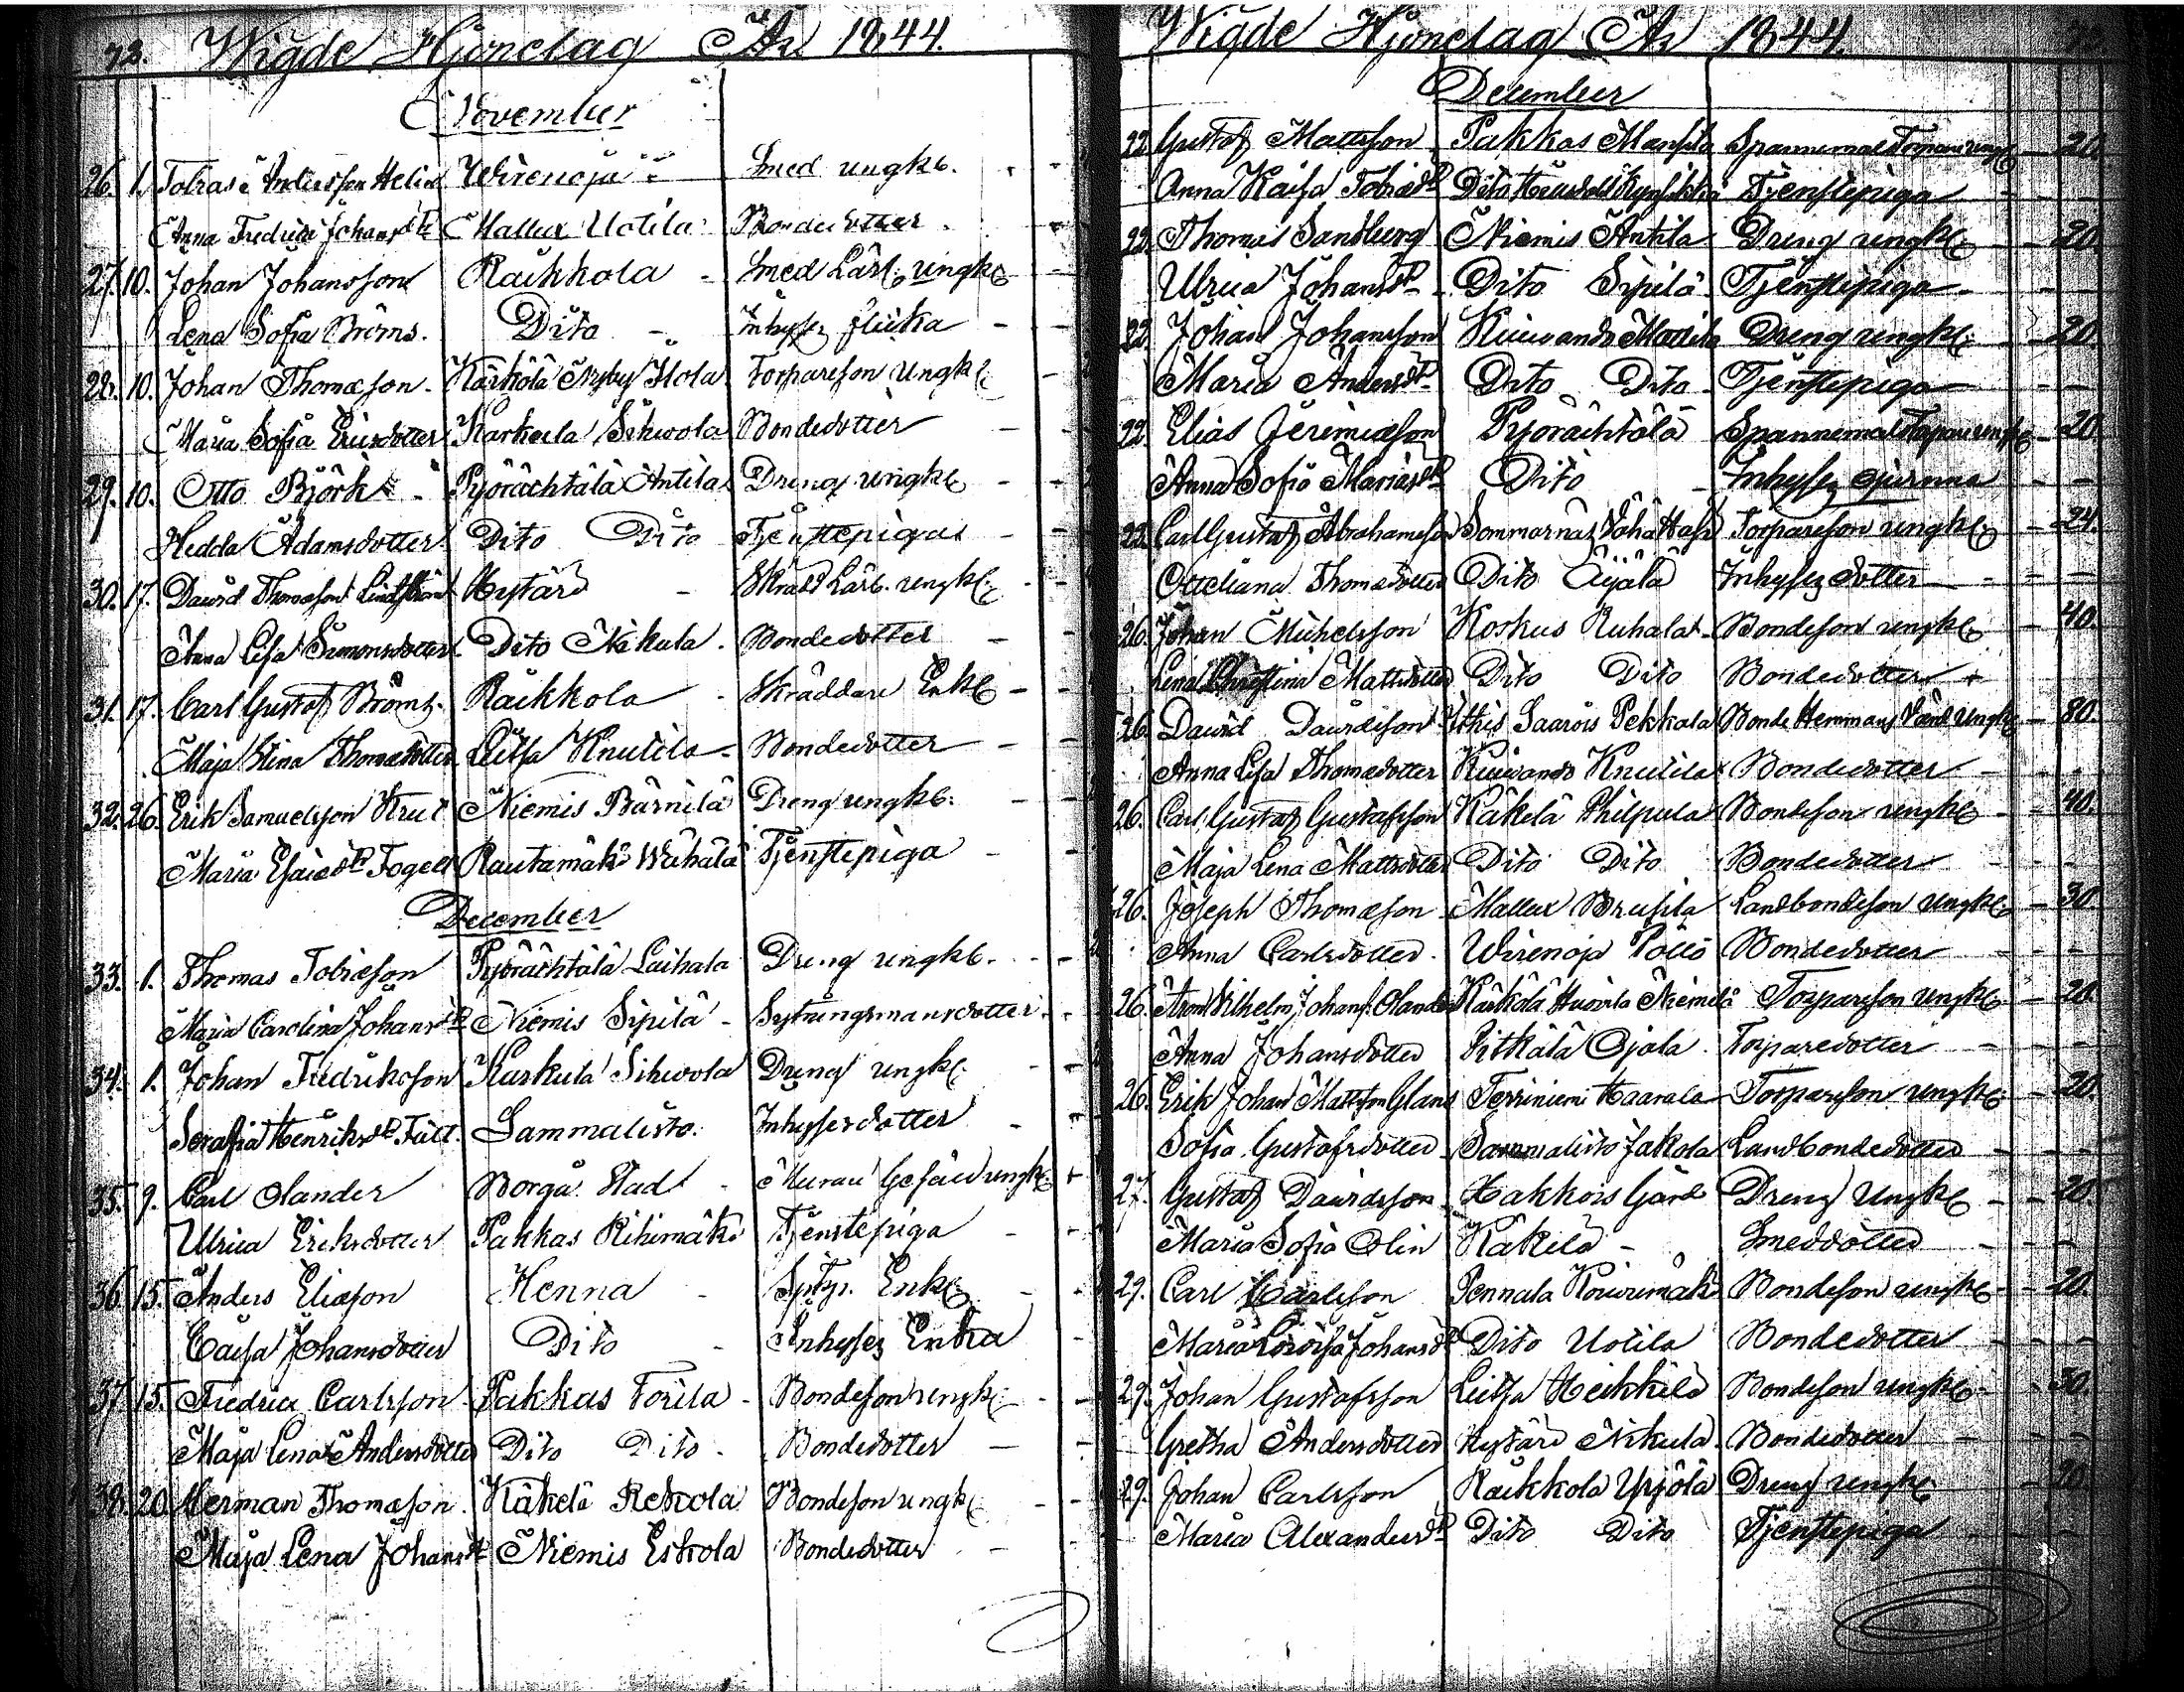 73. Wigde Hjonelag År 1844.
November
26. 1. Tobias Andersson Helin Wirenoja Smed ungkl.
Anna Fredrica Johansdr Mallux Uotila Bondedotter
27. 10. Johan Johansson Räikkola Smed Lärl. ungkl
Lena Sofia Broms. Dito Inhyses flicka
28. 10. Johan Thomasson Kärkölä Nyby Ilola Torpareson Ungkl
Maria Sofia Ericsdotter Karkeela Sihwola Bondedotter
29. 10. Otto Björk Pyörächtälä Antila Dreng ungkl
Hedda Adamsdotter Dito Dito Tjenstepiga
30. 17. David Thomasson Lindström Hystärö Skrädd. Lärl. ungkl.
Anna Lisa Simonsdotter Dito Nikula Bondedotter
31. 17. Carl Gustaf Broms Räikkola Skräddare Enkl
Maja Stina Thomasdotter Leitsa Knutila Bondedotter
32. 26. Erik Samuelsson Niemis Bärnilä Dreng ungkl.
Maria Esaiedr Fogell Rautamäki Wähälä Tjenstepiga
December
33. 1. Thomas Tobiasson Pyörächtälä Laihala Dreng ungkl.
Maria Carolina Johansdr Niemis Sipilä Sytningsmansdotter
34. 1. Johan Fredriksson Karkula Sihwola Dreng ungkl.
Serafia Henriksdr Fält Sammalisto Inhysesdotter
35. 9. Carl Olander Borgå Stad Murare Gesäll ungkl.
Ulrica Eriksdotter Pakkas Rihimäki Tjenstepiga
36. 15. Anders Eliasson Henna Enkl.
Caisa Johansdotter Dito Inhyses Enka
37. 15. Fredric Carlsson Pakkas Torila Bondeson ungkl.
Maja Lena Andersdotter Dito Dito Bondedotter
38. 20. Herman Thomasson Käkelä Rekola Bondeson ungkl
Maja Lena Johansdr Niemis Eskola Bondedotter
Wigde Hjonelag År 1844.
December
22. Gustaf Mattsson Pakkas Mansila Spannemåls Torpare ungkl 20.
Anna Kaisa Tobiedr Dito Tjenstepiga
22. Thomas Sandberg Niemis Antila Dreng ungkl 20.
Ulrica Johansdr Dito Sipilä Tjenstepiga
22. Johan Johansson Kuiwando Mattila Dreng ungkl. 20
Maria Andersdr Dito Dito Tjenstepiga
22. Elias Jeremiasson Pyörächtälä Spannemåls Torpare ungkl 20
Anna Sofia Mariasdr Dito Inhyses qvinna
22. Carl Gustaf Abrahamsson Sommarnäs Torpareson ungkl 24.
Otteliana Thomasdotter Dito Äijälä Inhyses dotter
26. Johan Michelsson Koskus Ruhala Bondeson ungkl 40.
Lena Christina Mattsdotter Dito Dito Bondedotter
26. David Davidsson Ithis Saarois Pekkala Bonde Hemmans Vänd Ungkl 80.
Anna Lisa Thomasdotter Kuiwando Knutila Bondedotter
26. Carl Gustaf Gustafsson Käkelä Philpula Bondeson ungkl 40.
Maja Lena Mattsdotter Dito Dito Bondedotter
26. Joseph Thomasson Mallux Brusila Landbondeson Ungkl. 30
Anna Carlsdotter Wirenoja Pöllö Bondedotter
26. Aron Wilhelm Johanss. Olander Kärkölä Huovila Niemelä Torpareson Ungkl. 20.
Anna Johansdotter Pitkälä Ojala Torparedotter
26. Erik Johan Mattsson Glans Terriniemi Haarala Torpareson ungkl. 20.
Sofia Gustafsdotter Sammalisto Jakola Landbondedotter
27. Gustaf Davidsson Hakkois Gård Dreng Ungkl 20.
Maria Sofia Olin Käkelä Smeddotter
29. Carl Carlsson Pennala Koiwumäki Bondeson ungkl 20.
Maria Lovisa Johansdr Dito Uotila Bondedotter
29. Johan Gustafsson Leitsa Heikkilä Bondeson ungkl. 30.
Gretha Andersdotter Hystärö Nikula Bondedotter
29. Johan Carlsson Räikkola Yrjölä Dreng ungkl 20.
Maria Alexandersdr Dito Dito Tjenstepiga